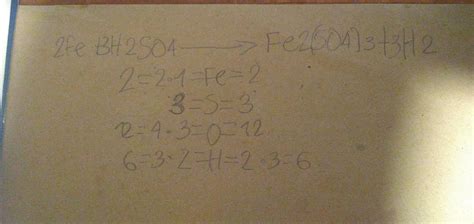 2Fe 3H2SO4 → Fe2(SO4)3+3H2
2=2·1=Fe=2
3=S=3
12=4·3=O=12
6=3·2=H=2·3=6